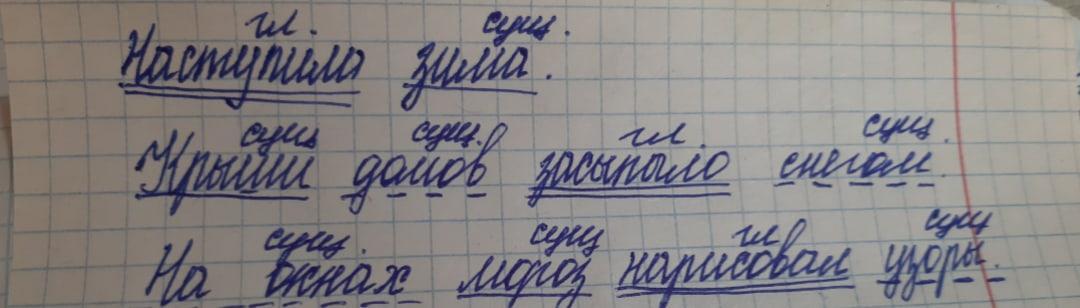 гл. сущ.
Наступила зима.
сущ сущ. гл. сущ.
Крыши домов засыпало снегом.
сущ. сущ гл. сущ
На окнах мороз нарисовал узоры.